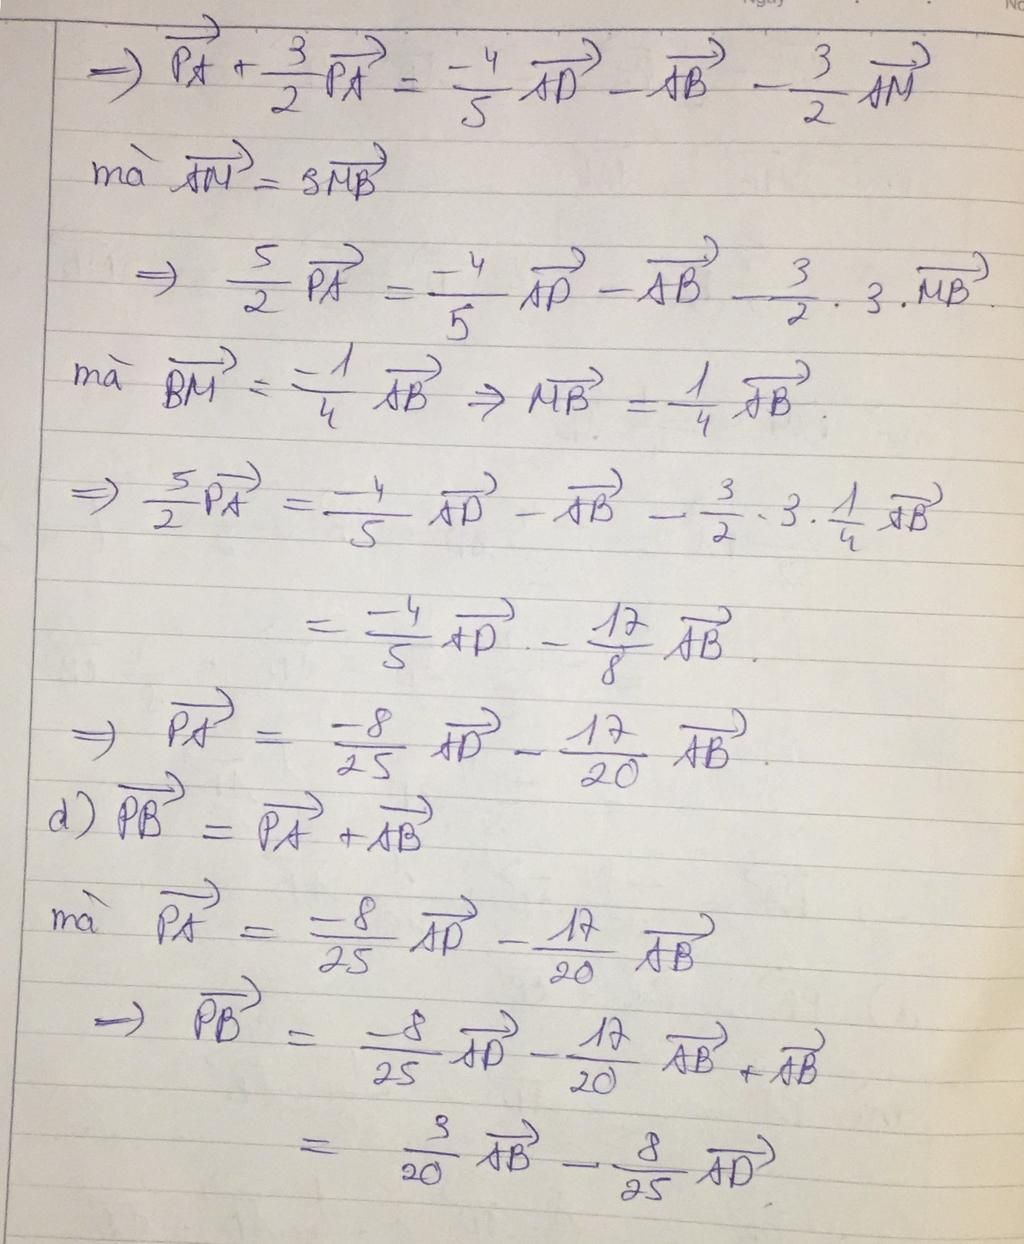 Ngày
No
⇒) PA⃗ + 3/2 PA⃗ = -4/5 AD⃗ - AB⃗ - 3/2 AM⃗
mà AM⃗ = 3MB⃗
⇒ 5/2 PA⃗ = -4/5 AD⃗ - AB⃗ - 3/2 . 3 . MB⃗.
mà BM⃗ = -1/4 AB⃗ ⇒ MB⃗ = 1/4 AB⃗.
⇒) 5/2 PA⃗ = -4/5 AD⃗ - AB⃗ - 3/2 . 3 . 1/4 AB⃗
= -4/5 AD⃗ - 17/8 AB⃗.
⇒) PA⃗ = -8/25 AD⃗ - 17/20 AB⃗.
d) PB⃗ = PA⃗ + AB⃗
mà PA⃗ = -8/25 AD⃗ - 17/20 AB⃗
⇒) PB⃗ = -8/25 AD⃗ - 17/20 AB⃗ + AB⃗
= 3/20 AB⃗ - 8/25 AD⃗.